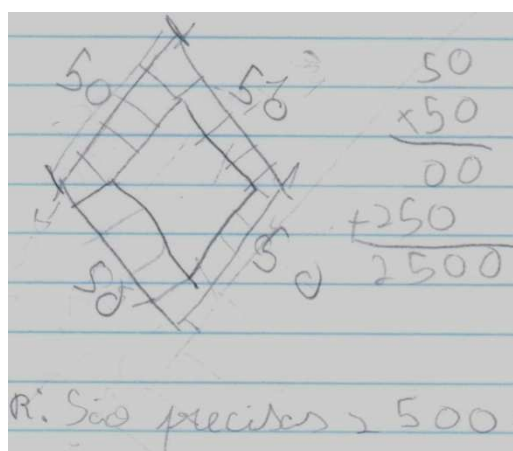 50 50
50 50
50
×50
00
+250
2500
R: São precisas 2500